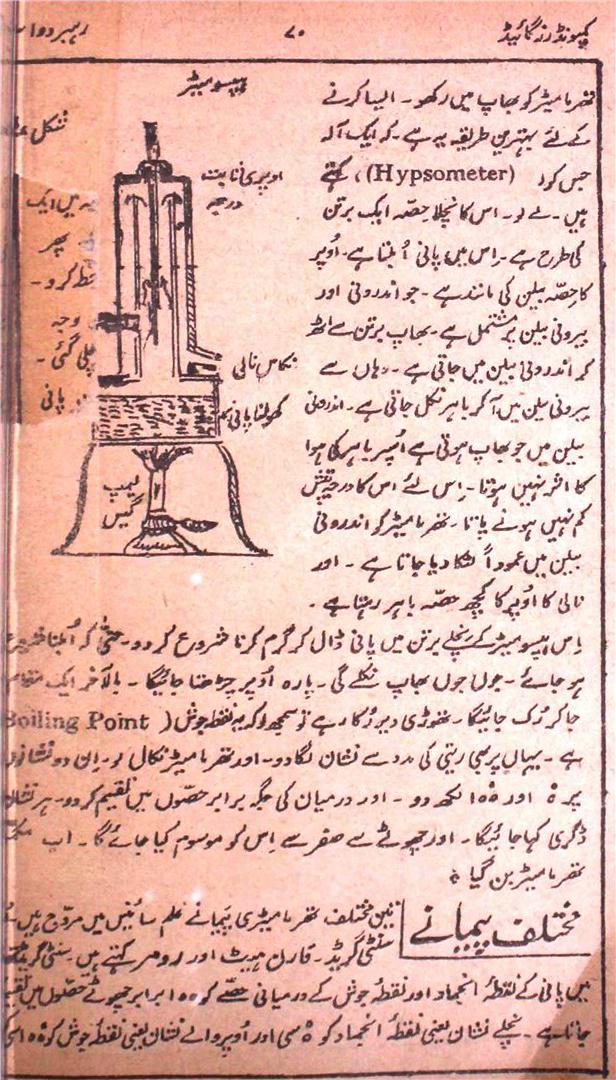 کمپونڈرز گائیڈ
۷۰
رہبر دوا
تھرمامیٹر کو بھاپ میں رکھو۔ ایسا کرنے
کے لئے بہترین طریقہ یہ ہے۔ کہ ایک آلہ
جس کو (Hypsometer) کہتے
ہیں۔ لے لو۔ اس کا نچلا حصّہ ایک برتن
کی طرح ہے۔ اِس میں پانی اُبلتا ہے۔ اُوپر
کا حصّہ بیلن کی مانند ہے۔ جو اندرونی اور
بیرونی بیلن پر مشتمل ہے۔ بھاپ برتن سے اُٹھ
کر اندرونی بیلن میں جاتی ہے۔ وہاں سے
بیرونی بیلن میں آ کر باہر نکل جاتی ہے۔ اندرونی
بیلن میں جو بھاپ ہوتی ہے اُسپر باہر کی ہوا
کا اثر نہیں ہوتا۔ اِس لئے اس کا درجہ تپش
کم نہیں ہونے پاتا۔ تھرمامیٹر کو اندرونی
بیلن میں عموداً لٹکا دیا جاتا ہے۔ اور
نالی کا اُوپر کا کچھ حصّہ باہر رہتا ہے۔
ہپسومیٹر
شکل
اوپری ثابت
درجہ
نکاس نالی
کھولتا پانی
لیمپ
گیس
میں ایک
پھر
کرو۔
وجہ
گئی۔
پانی
اِس ہپسومیٹر کے نچلے برتن میں پانی ڈال کر گرم کرنا شروع کر دو۔ حتیٰ کہ اُبلنا شروع
ہو جائے۔ جوں جوں بھاپ نکلے گی۔ پارہ اُوپر چڑھتا جائیگا۔ بالآخر ایک مقام
جا کر رُک جائیگا۔ تھوڑی دیر رُکا رہے تو سمجھ لو کہ یہ نقطہ جوش (Boiling Point)
ہے۔ یہاں پر بھی ریتی کی مدد سے نشان لگا دو۔ اور تھرمامیٹر نکال لو۔ اِن دو نشانوں
پر ۰ اور ۱۰۰ لکھ دو۔ اور درمیان کی جگہ برابر حصّوں میں تقسیم کر دو۔ ہر نشان
ڈگری کہا جائیگا۔ اور چھوٹے سے صفر سے اِس کو موسوم کیا جائے گا۔ اب
تھرمامیٹر بن گیا
مختلف پیمانے
تین مختلف تھرمامیٹری پیمانے علم سائنس میں مروّج ہیں
سنٹی گریڈ۔ فارن ہیٹ اور رومر کہتے ہیں۔ سنٹی گریڈ
میں پانی کے نقطۂ انجماد اور نقطۂ جوش کے درمیانی حصّے کو ۱۰۰ برابر چھوٹے حصّوں میں تقسیم
جاتا ہے۔ نچلے نشان یعنی نقطۂ انجماد کو ۰ سی اور اُوپر والے نشان یعنی نقطۂ جوش کو ۱۰۰ سی